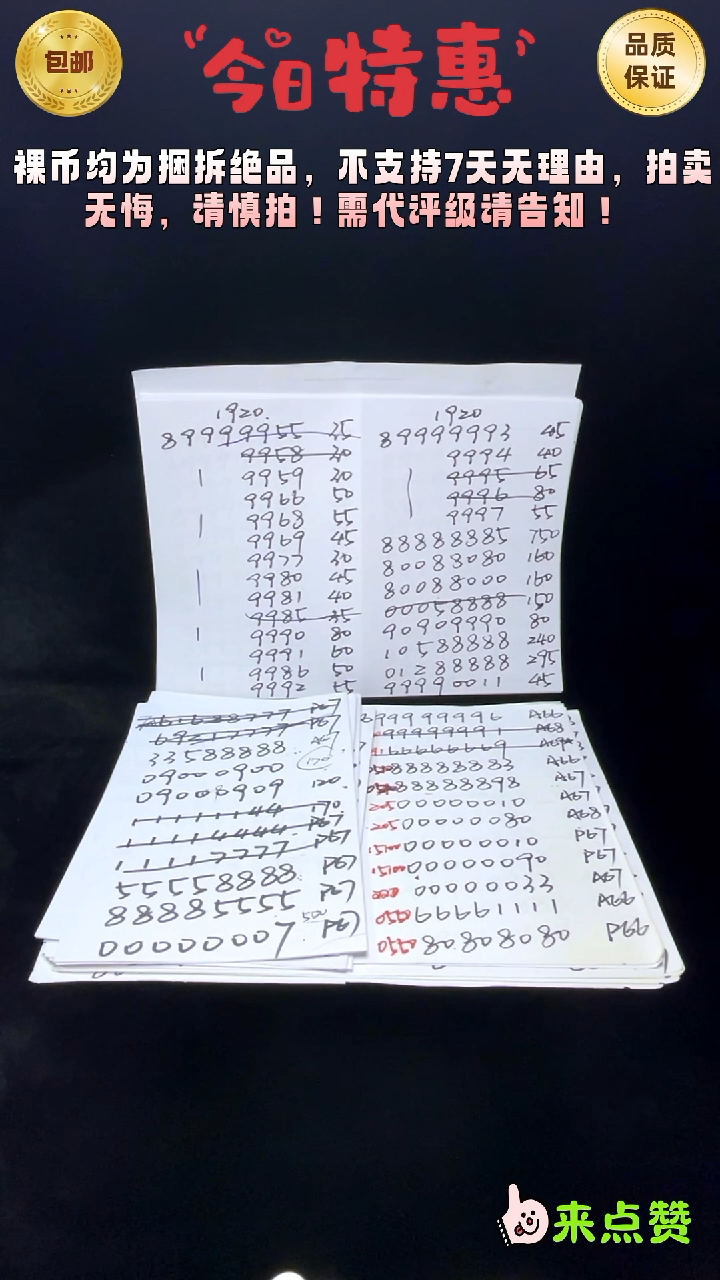 包邮
今日特惠
品质
保证
裸币均为捆拆绝品，不支持7天无理由，拍卖
无悔，请慎拍！需代评级请告知！
1920.
89999955 35
9958 30
9959 30
9966 50
9968 55
9969 45
9977 30
9980 45
9981 40
9985 35
9990 80
9991 60
9986 50
9992 55
1920
89999993 45
9994 40
9995 65
9996 80
9997 55
88888885 750
80088080 160
80088000 160
00058888 150
90909990 80
10588888 240
01288888 295
99990011 45
69217777 P67
33588888 A67
09000900 170
09008909 120.
11111144 170
11114444 P67
11117777 P67
55558888 P67
88885555 P67
00000007 500 P67
99999996 A66
99999991 A68
66666669
88888883 A66
88888898 A67
205 00000010 A67
205 00000080 A68
15100 00000010 P67
15100 00000090 P67
00000033 A67
050 99991111 A66
0550 80808080 P66
来点赞